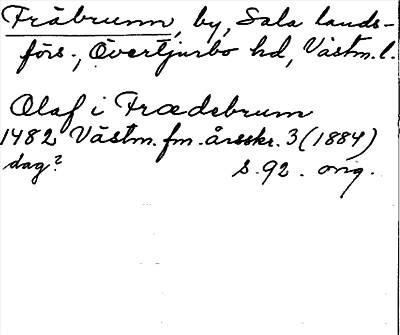 Fräbrunn, by, Sala lands-
förs., Övertjurbo hd, Västm. l.
Olaf i Frædebrum
1482 Västm. fm. årsskr. 3 (1884)
dag? s. 92. orig.